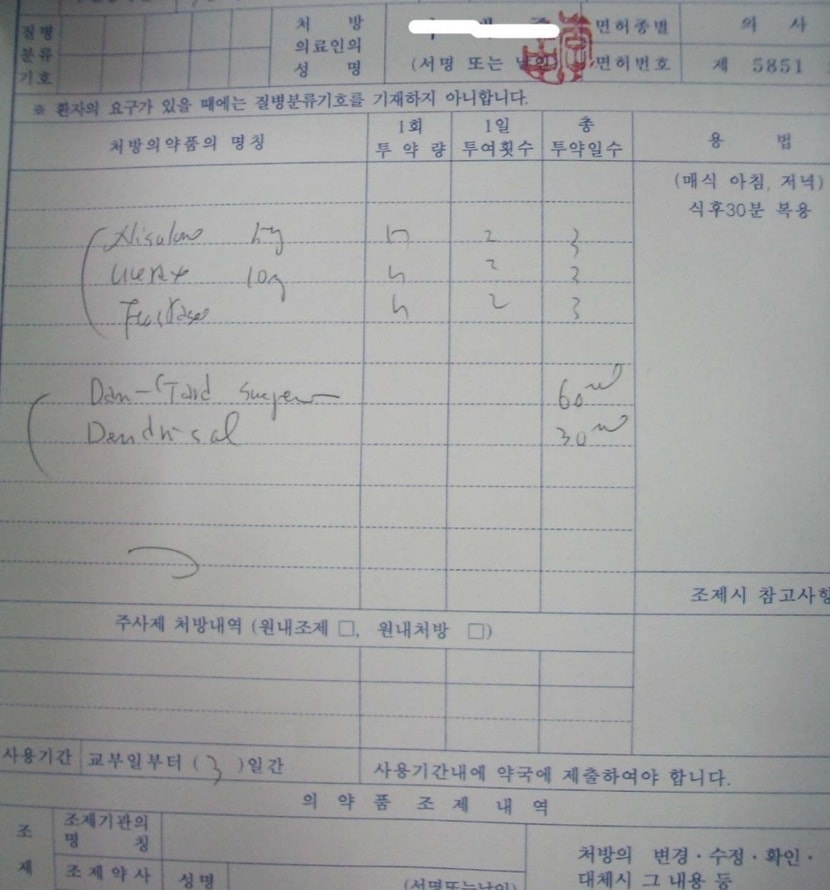 질병 분류 기호
처 방 의료인의 성 명
(서명 또는 날인)
면허종별
의 사
면허번호
제 5851
※ 환자의 요구가 있을 때에는 질병분류기호를 기재하지 아니합니다.
처방의약품의 명칭
1회 투 약 량
1일 투여횟수
총 투약일수
용 법
(매식 아침, 저녁)
식후30분 복용
5g 2 3
10g 2 3
2 3
Dan-Tard 60
Dendrisal 30
조제시 참고사항
주사제 처방내역 (원내조제 □, 원내처방 □)
사용기간 교부일부터 (3)일간 사용기간내에 약국에 제출하여야 합니다.
의 약 품 조 제 내 역
조 제
조제기관의 명 칭
처방의 변경·수정·확인·
대체시 그 내용 등
조제약사 성명 (서명또는날인)